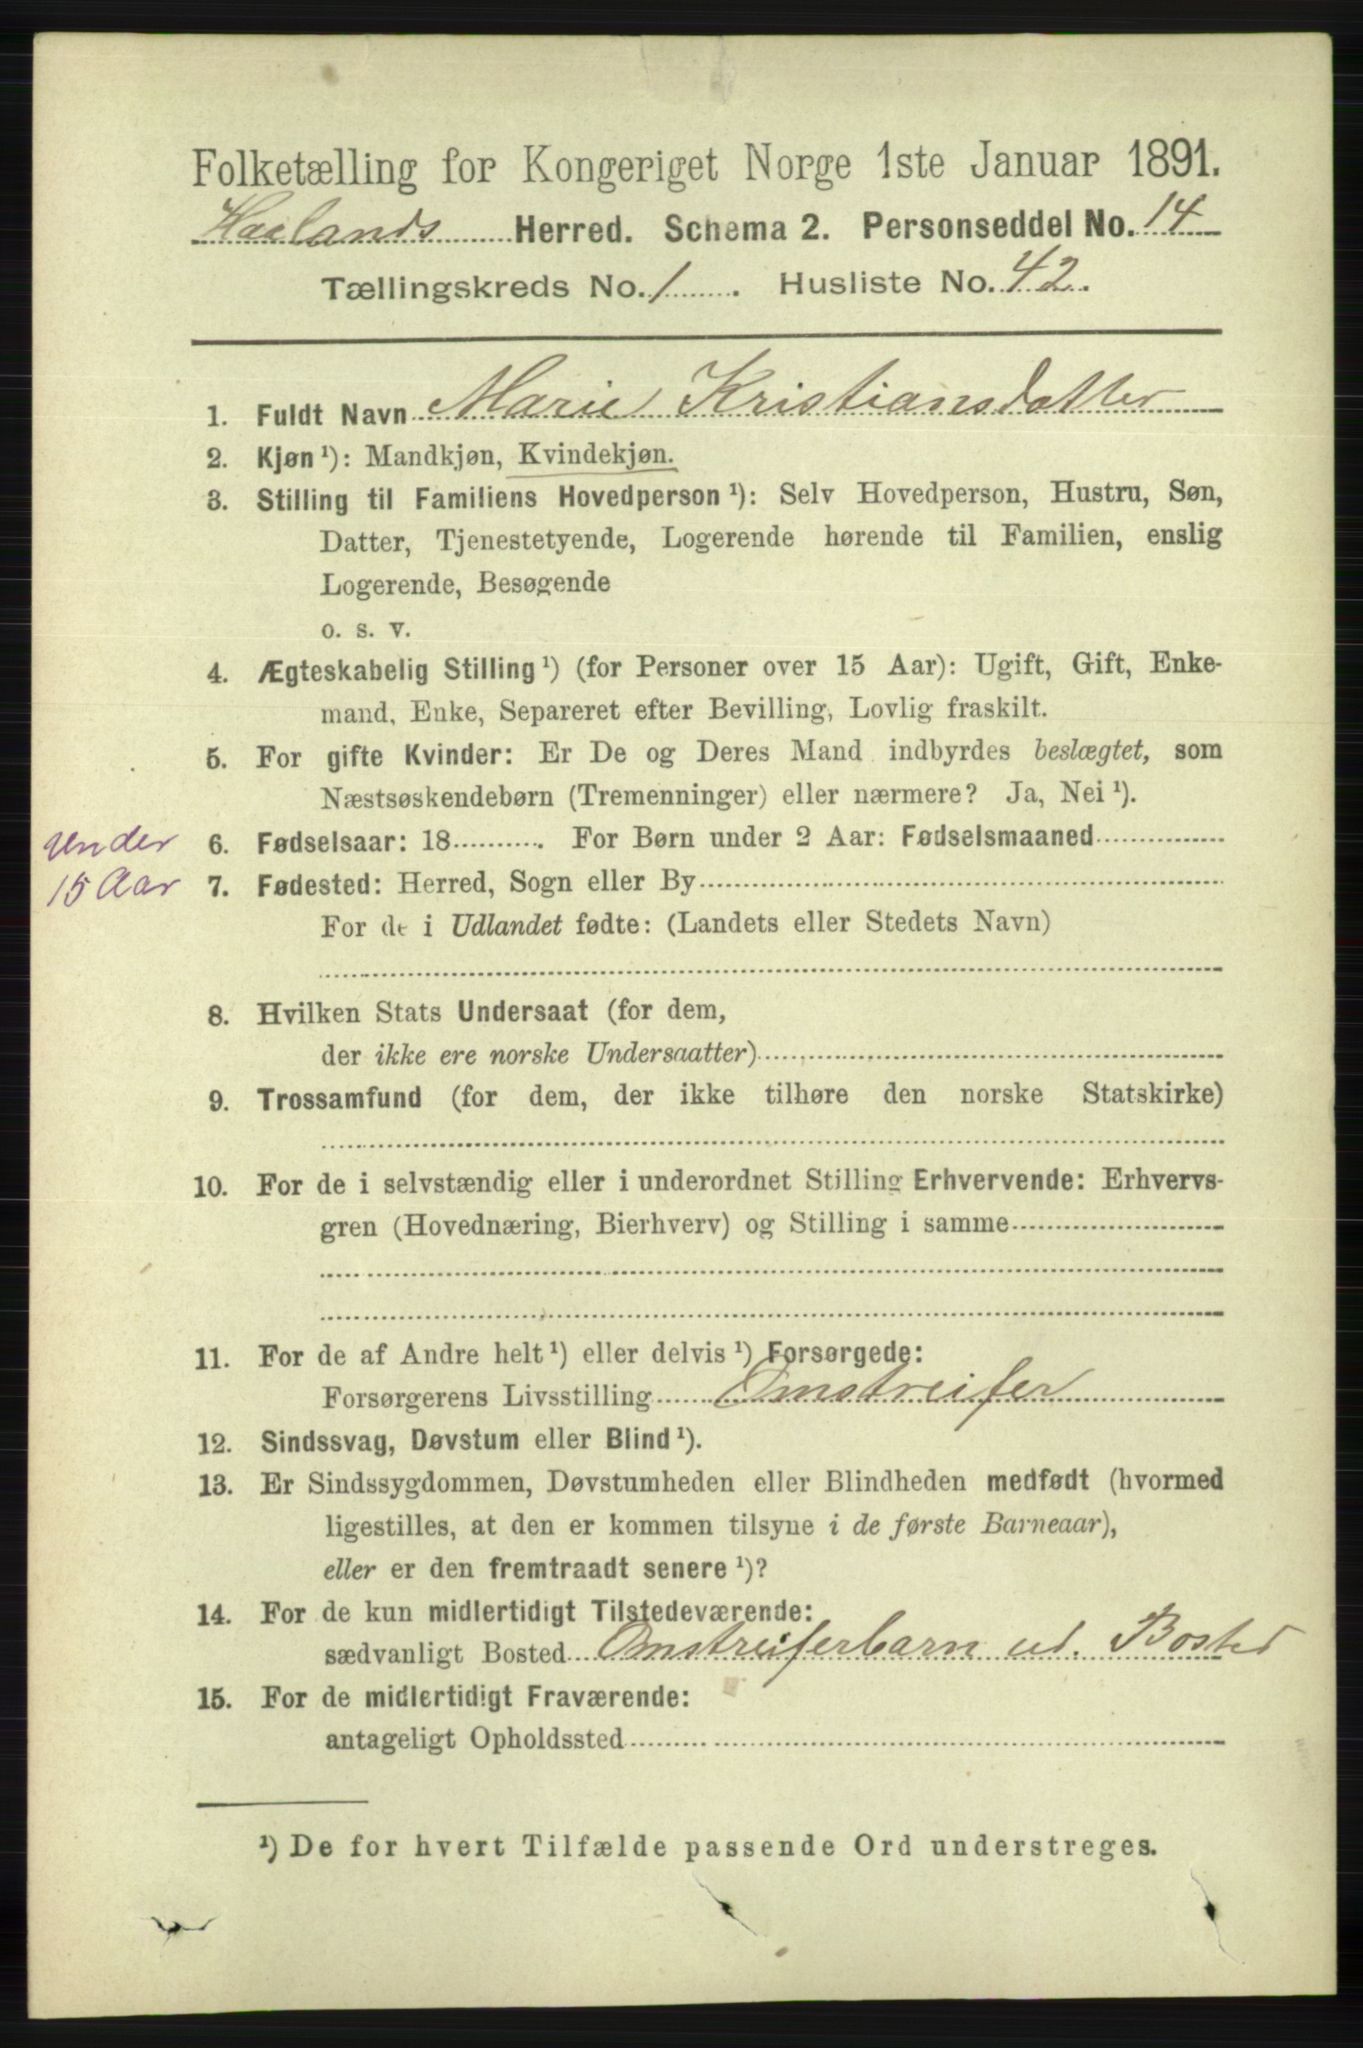 Folketælling for Kongeriget Norge 1ste Januar 1891.
Haalands Herred. Schema 2. Personseddel No. 14
Tællingskreds No. 1. Husliste No. 42.
1. Fuldt Navn Marie Kristiansdatter
2. Kjøn ¹): Mandkjøn, Kvindekjøn.
3. Stilling til Familiens Hovedperson ¹): Selv Hovedperson, Hustru, Søn,
Datter, Tjenestetyende, Logerende hørende til Familien, enslig
Logerende, Besøgende
o. s. v.
4. Ægteskabelig Stilling ¹) (for Personer over 15 Aar): Ugift, Gift, Enke-
mand, Enke, Separeret efter Bevilling, Lovlig fraskilt.
5. For gifte Kvinder: Er De og Deres Mand indbyrdes beslægtet, som
Næstsøskendebørn (Tremenninger) eller nærmere? Ja, Nei ¹).
under
6. Fødselsaar: 18.......... For Børn under 2 Aar: Fødselsmaaned
15 Aar
7. Fødested: Herred, Sogn eller By
For de i Udlandet fødte: (Landets eller Stedets Navn)
8. Hvilken Stats Undersaat (for dem,
der ikke ere norske Undersaatter)
9. Trossamfund (for dem, der ikke tilhøre den norske Statskirke)
10. For de i selvstændig eller i underordnet Stilling Erhvervende: Erhvervs-
gren (Hovednæring, Bierhverv) og Stilling i samme
11. For de af Andre helt ¹) eller delvis ¹) Forsørgede:
Forsørgerens Livsstilling Omstreifer
12. Sindssvag, Døvstum eller Blind ¹).
13. Er Sindssygdommen, Døvstumheden eller Blindheden medfødt (hvormed
ligestilles, at den er kommen tilsyne i de første Barneaar),
eller er den fremtraadt senere ¹)?
14. For de kun midlertidigt Tilstedeværende:
sædvanligt Bosted Omstreiferbarn ud. Bosted
15. For de midlertidigt Fraværende:
antageligt Opholdssted
¹) De for hvert Tilfælde passende Ord understreges.